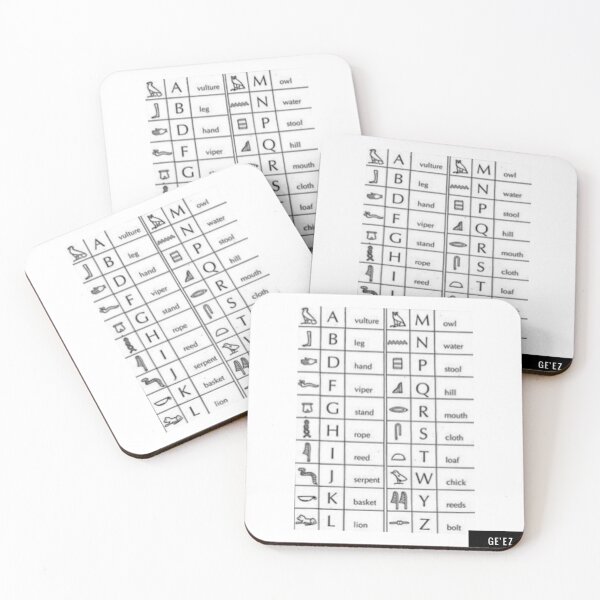 A vulture M owl
B leg N water
D hand P stool
F viper Q hill
G R mouth
S cloth
loaf
A vulture M owl
B leg N water
D hand P stool
F viper Q hill
G stand R mouth
H rope S cloth
I reed T loaf
GE'EZ
A vulture M owl
B leg N water
D hand P stool
F viper Q hill
G stand R mouth
H rope S cloth
I reed
J serpent
K basket
L lion
A vulture M owl
B leg N water
D hand P stool
F viper Q hill
G stand R mouth
H rope S cloth
I reed T loaf
J serpent W chick
K basket Y reeds
L lion Z bolt
GE'EZ